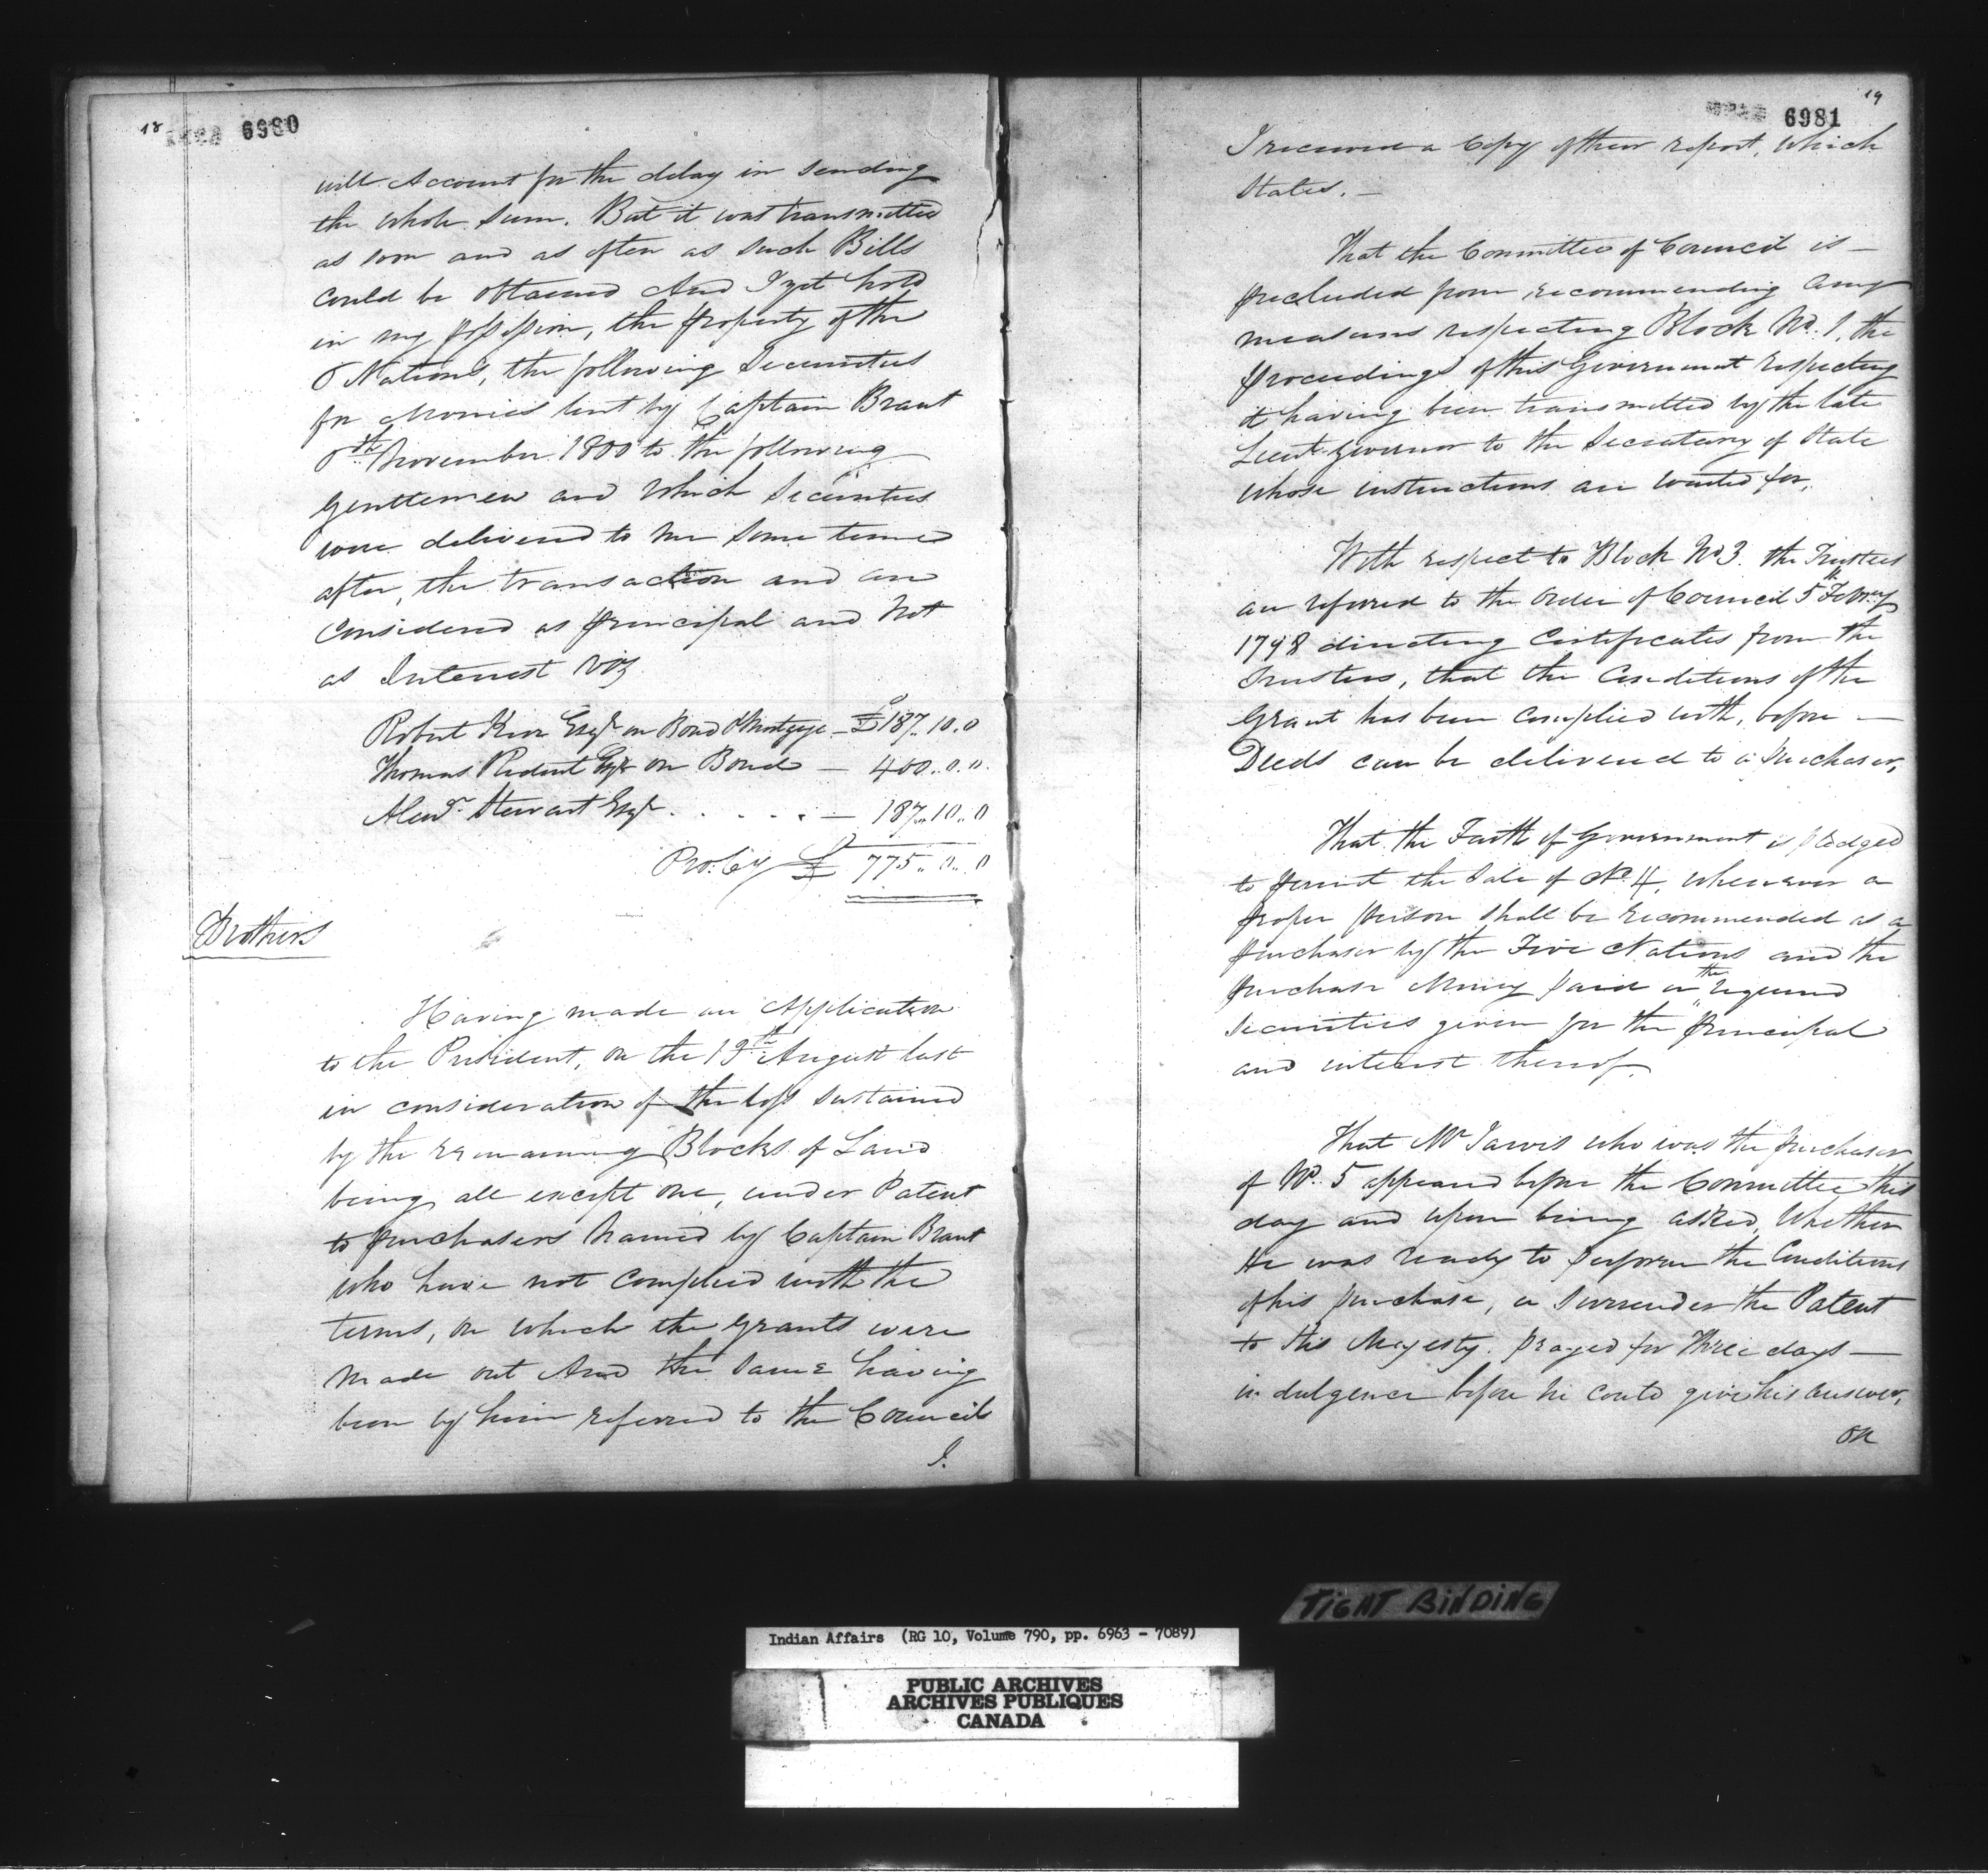 18
6980
will Account for the delay in sending
the whole Sum. But it was transmitted
as soon and as often as such Bills
could be obtained And I yet hold
in my possession, the property of the
5 Nations, the following Securities
for Monies lent by Captain Brant
5th November 1800 to the following
Gentlemen and which Securities
were delivered to me some time
after, the transaction and are
Considered as principal and Not
as Interest viz
Robert Kerr Esqr on Bond & Mortgage — £187..10..0
Thomas Ridout Esqr on Bond — 400..0..0
Alexr. Stewart Esqr . . . . . . — 187..10..0
Pro: Cy £ 775..0..0
Brothers
Having made an Application
to the President, on the 19th August last
in consideration of the loss sustained
by the remaining Blocks of Land
being all except one, under Patent
to purchasers Named by Captain Brant
who have not complied with the
terms, on which the grants were
Made out And the same having
been by him referred to the Council
I.
19
6981
I received a Copy of their report, which
States. —
That the Committee of Council is —
precluded from recommending any
measures respecting Block No. 1, the
proceedings of this Government respecting
it having been transmitted by the late
Lieut. Governor to the Secretary of State
whose instructions are waited for,
With respect to Block No 3. the Trustees
are referred to the Order of Council 5th Febry
1798 directing Certificates from the
Trustees, that the Conditions of the
Grant has been complied with, before —
Deeds can be delivered to a purchaser,
That the Faith of Government is pledged
to permit the Sale of No. 4, whenever a
proper person shall be recommended as a
purchaser by the Five Nations and the
purchase Money paid or the required
Securities given for the principal
and interest thereof.
That Mr Jarvis who was the purchaser
of No. 5 appeared before the Committee this
day and upon being asked, Whether
He was ready to perform the Conditions
of his purchase, or surrender the Patent
to His Majesty. prayed for Three days —
indulgence before he could give his answer,
On
TIGHT BINDING
Indian Affairs (RG 10, Volume 790, pp. 6963 - 7089)
PUBLIC ARCHIVES
ARCHIVES PUBLIQUES
CANADA